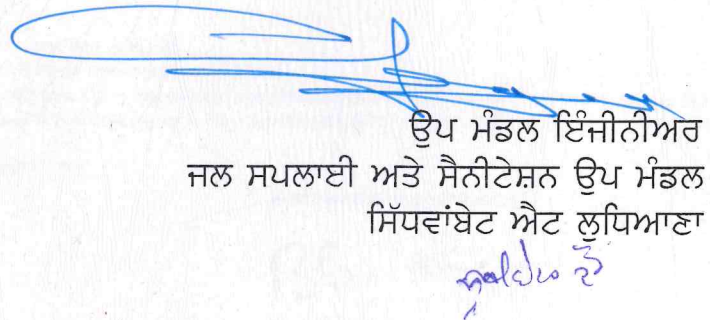 ਉਪ ਮੰਡਲ ਇੰਜੀਨੀਅਰ
ਜਲ ਸਪਲਾਈ ਅਤੇ ਸੈਨੀਟੇਸ਼ਨ ਉਪ ਮੰਡਲ
ਸਿੱਧਵਾਂਬੇਟ ਐਟ ਲੁਧਿਆਣਾ